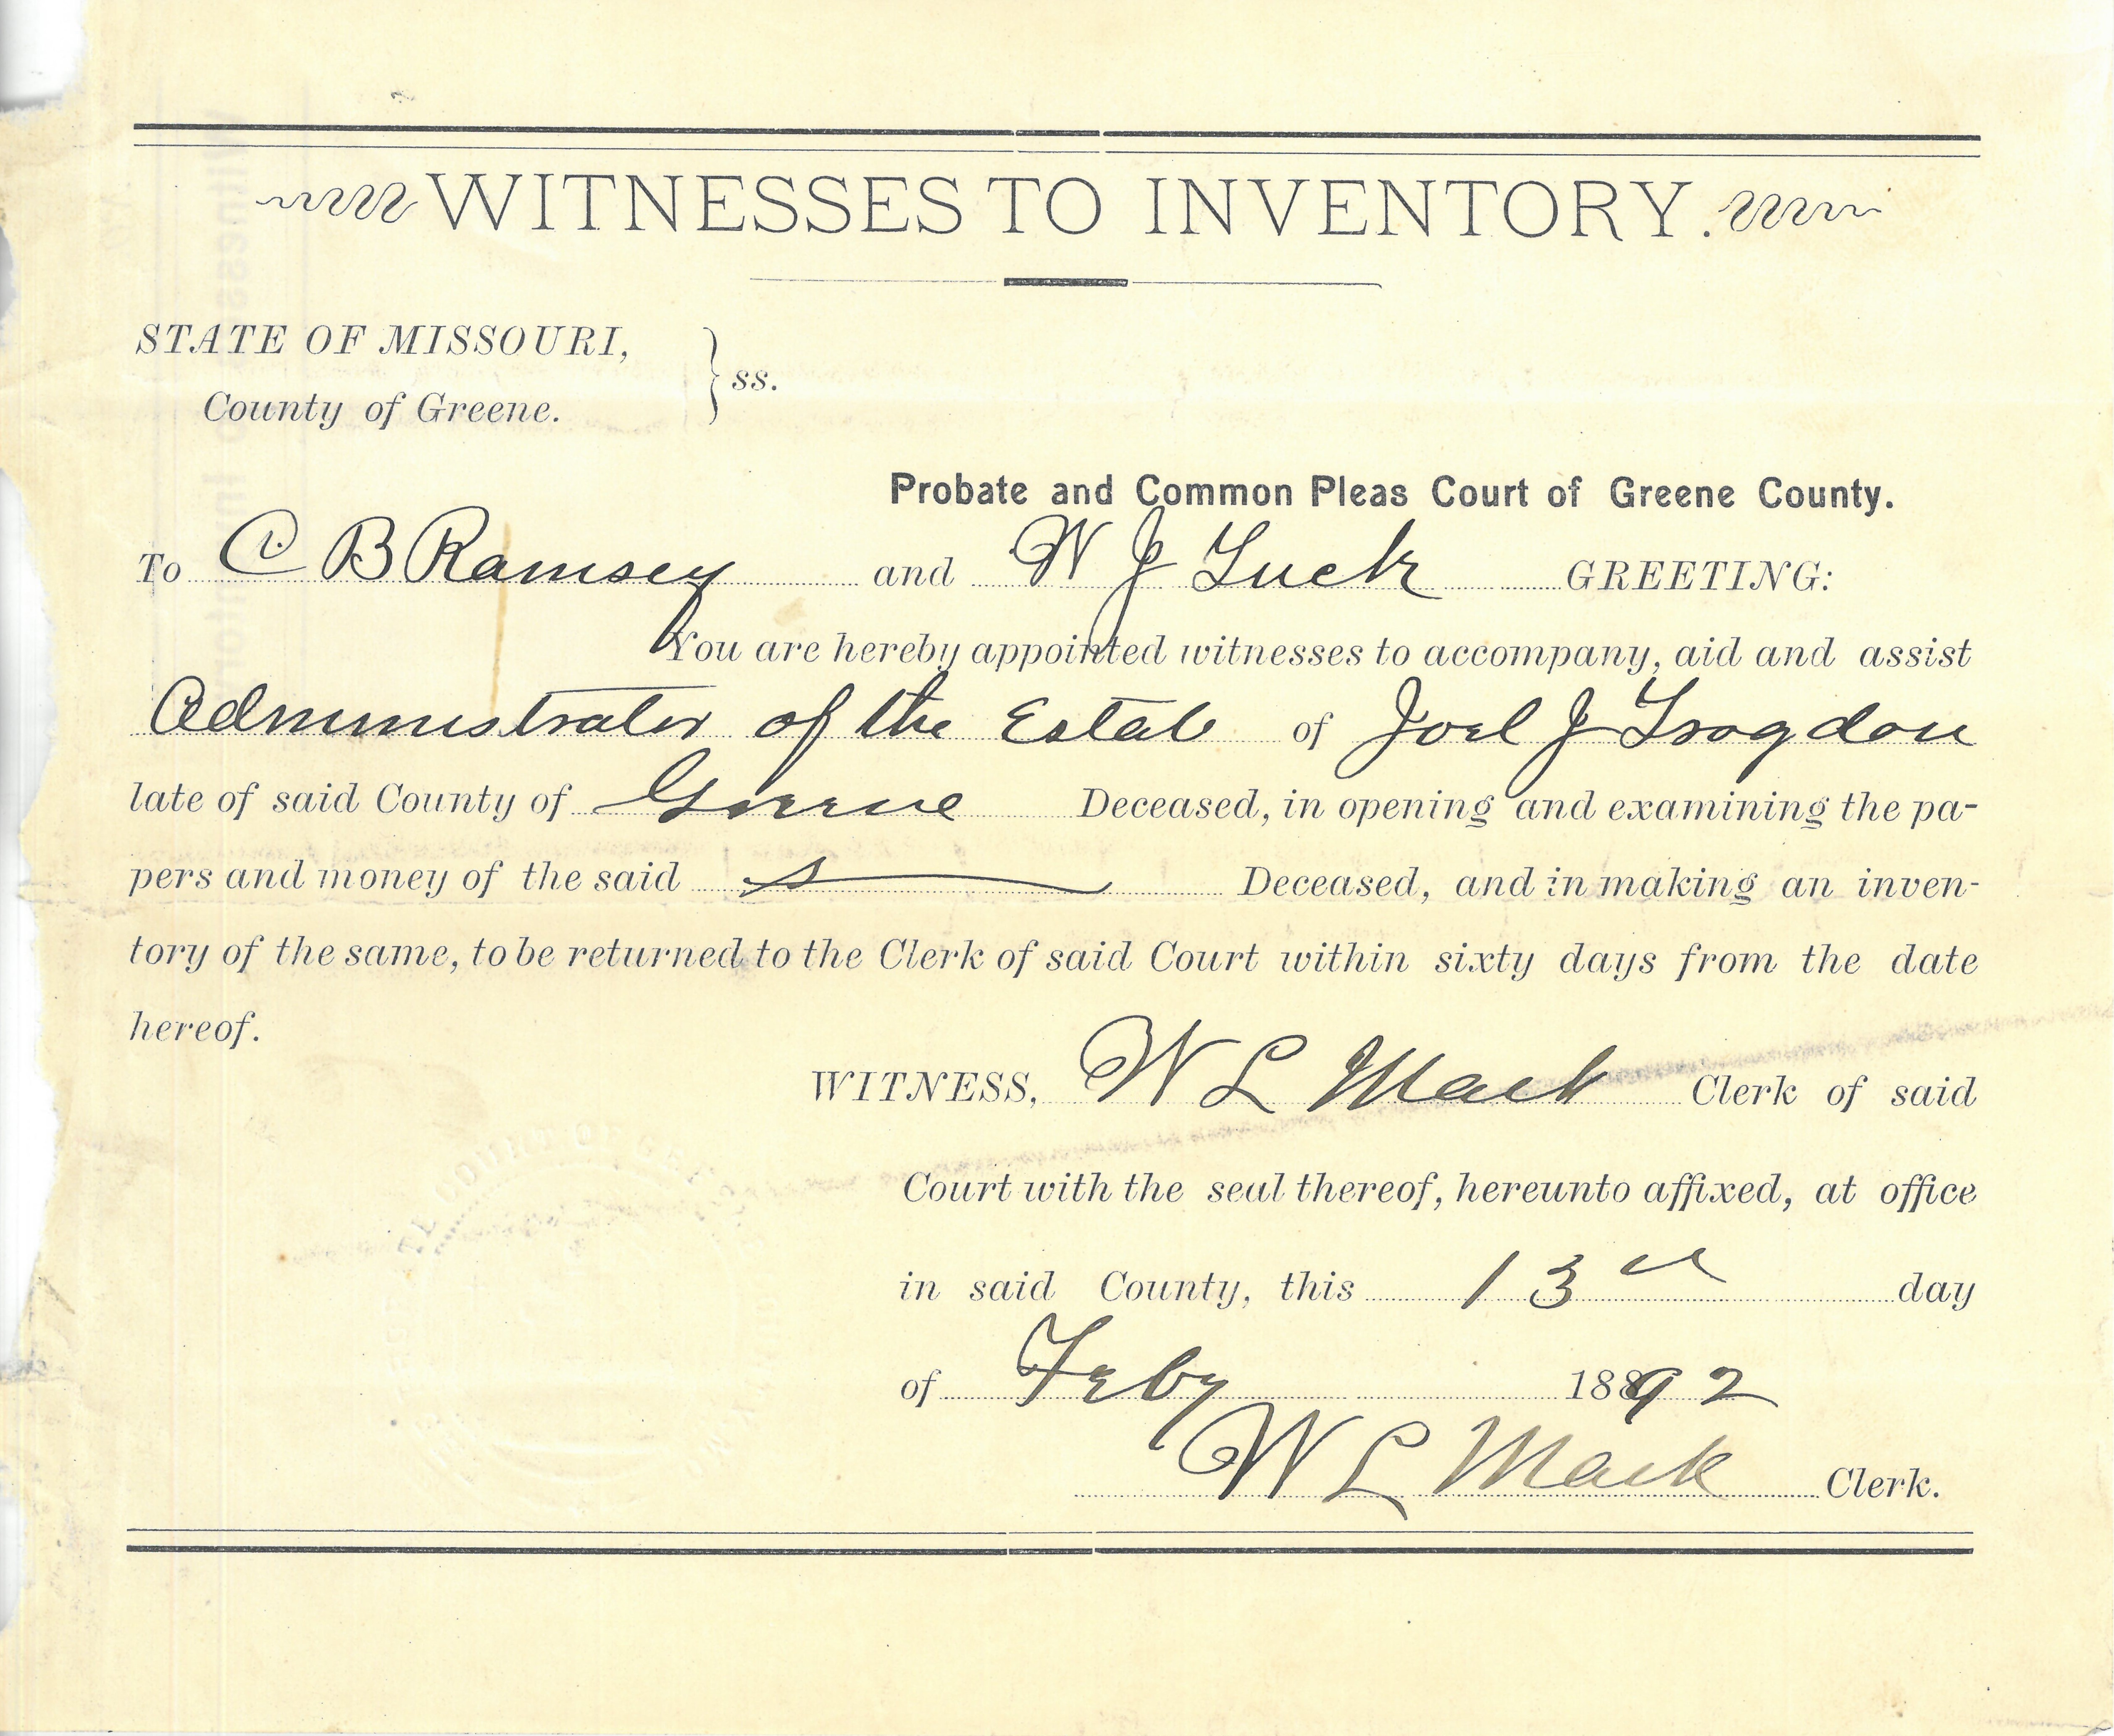 WITNESSES TO INVENTORY.
STATE OF MISSOURI,
County of Greene. } ss.
Probate and Common Pleas Court of Greene County.
To C B Ramsey and W J Luck GREETING:
You are hereby appointed witnesses to accompany, aid and assist
Administrator of the Estate of Joel J Trogdon
late of said County of Greene Deceased, in opening and examining the pa-
pers and money of the said Deceased, and in making an inven-
tory of the same, to be returned to the Clerk of said Court within sixty days from the date
hereof.
WITNESS, W L Mack Clerk of said
Court with the seal thereof, hereunto affixed, at office
in said County, this 13 day
of Feby 1892
W L Mack Clerk.